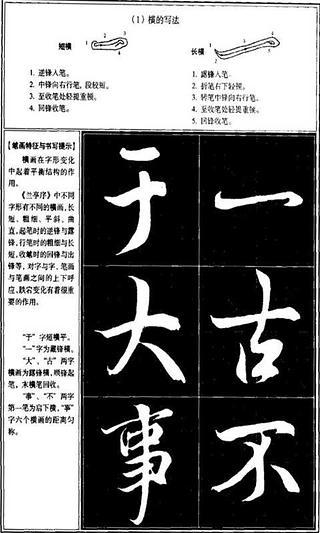 （1）横的写法
短横
1
2
3
4
长横
1
2
3
4
5
1. 逆锋入笔。
2. 中锋向右行笔，段较短。
3. 至收笔处轻提重顿。
4. 回锋收笔。
1. 露锋入笔。
2. 折笔右下轻顿。
3. 转笔中锋向右行笔。
4. 至收笔处轻提重顿。
5. 回锋收笔。
【笔画特征与书写提示】
横画在字形变化
中起着平衡结构的作
用。
《兰亭序》中不同
字形有不同的横画，长
短、粗细、平斜、曲
直，起笔时的逆锋与露
锋，行笔时的粗细与长
短，收笔时的回锋与出
锋等，对字与字，笔画
与笔画之间的上下呼
应、跌宕变化有着很重
要的作用。
“于”字短横平。
“一”字为藏锋横，
“大”、“古”两字
横画为露锋横，顺锋起
笔，末横笔回收。
“事”、“不”两字
第一笔为启下横，“事”
字六个横画的距离匀
称。
于 一
大 古
事 不